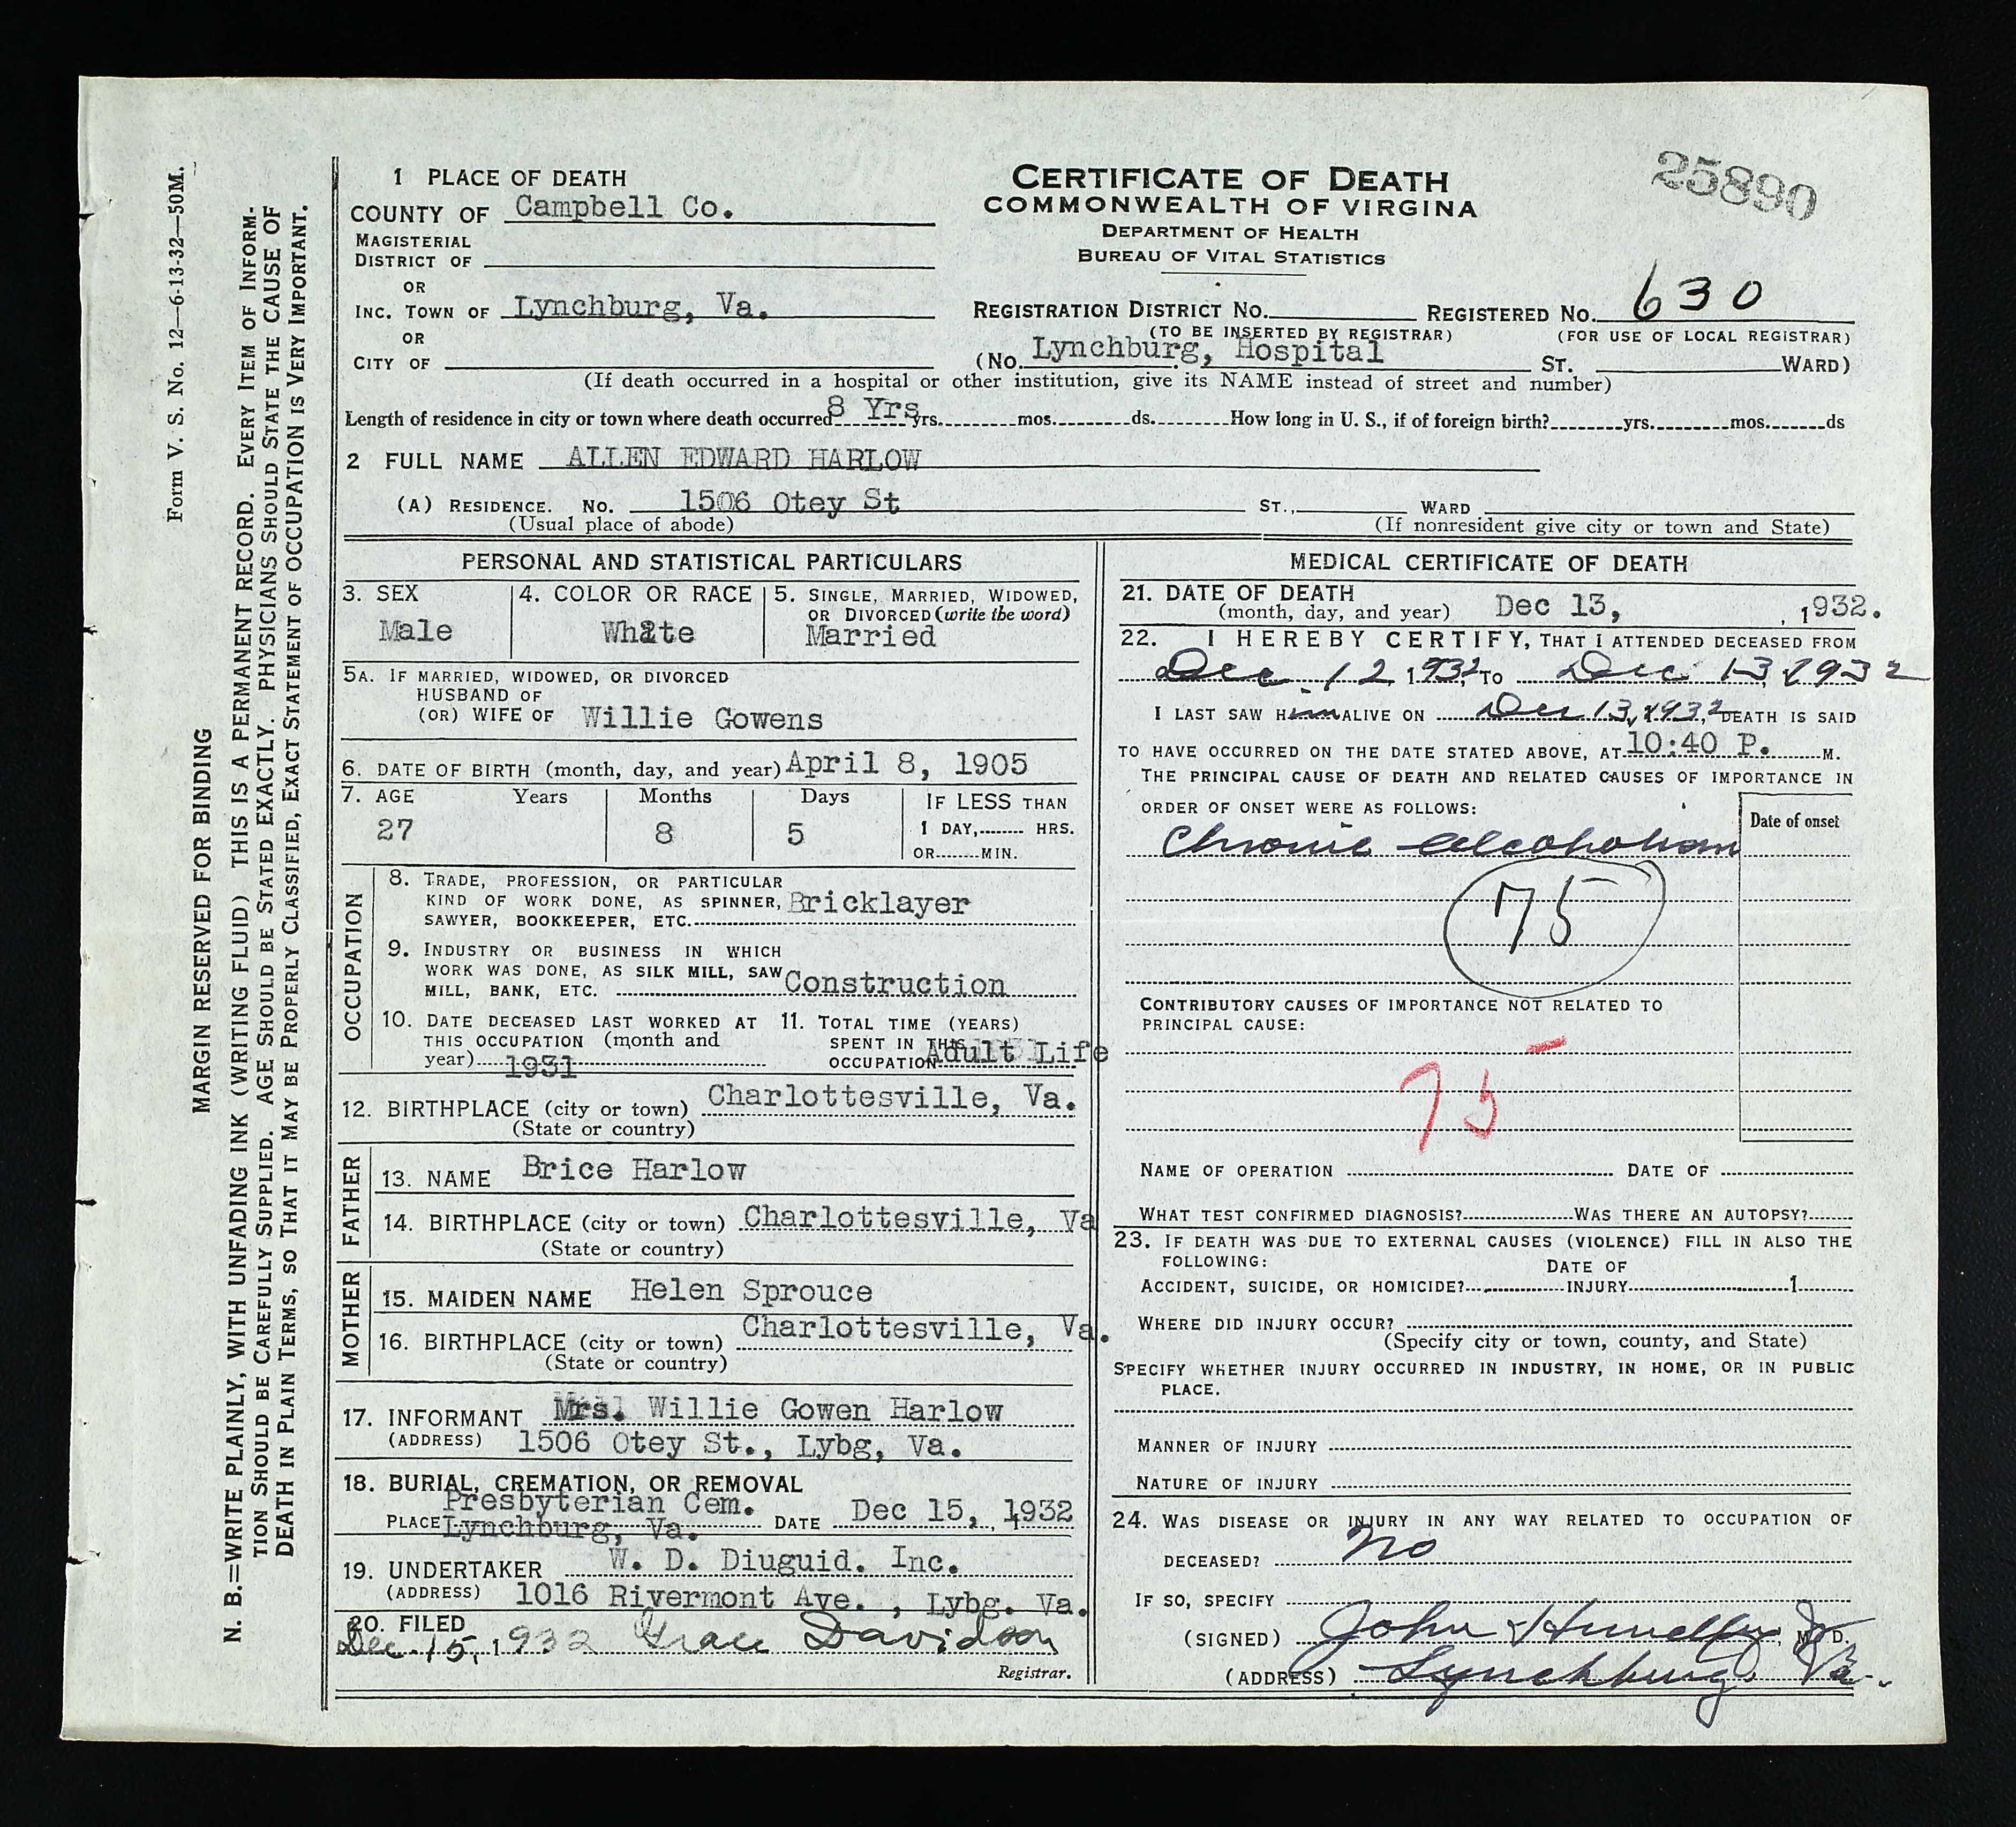 Form V. S. No. 12—6-13-32—50M.
MARGIN RESERVED FOR BINDING
N. B.=WRITE PLAINLY, WITH UNFADING INK (WRITING FLUID) THIS IS A PERMANENT RECORD. EVERY ITEM OF INFORM-
TION SHOULD BE CAREFULLY SUPPLIED. AGE SHOULD BE STATED EXACTLY. PHYSICIANS SHOULD STATE THE CAUSE OF
DEATH IN PLAIN TERMS, SO THAT IT MAY BE PROPERLY CLASSIFIED, EXACT STATEMENT OF OCCUPATION IS VERY IMPORTANT.
25890
CERTIFICATE OF DEATH
COMMONWEALTH OF VIRGINA
DEPARTMENT OF HEALTH
BUREAU OF VITAL STATISTICS
1 PLACE OF DEATH
COUNTY OF Campbell Co.
MAGISTERIAL
DISTRICT OF
OR
INC. TOWN OF Lynchburg, Va.
OR
CITY OF
REGISTRATION DISTRICT NO. REGISTERED NO. 630
(TO BE INSERTED BY REGISTRAR) (FOR USE OF LOCAL REGISTRAR)
(NO. Lynchburg, Hospital ST. WARD)
(If death occurred in a hospital or other institution, give its NAME instead of street and number)
Length of residence in city or town where death occurred 8 Yrs yrs. mos. ds. How long in U. S., if of foreign birth? yrs. mos. ds
2 FULL NAME ALLEN EDWARD HARLOW
(A) RESIDENCE. NO. 1506 Otey St ST., WARD
(Usual place of abode) (If nonresident give city or town and State)
PERSONAL AND STATISTICAL PARTICULARS
3. SEX 4. COLOR OR RACE 5. SINGLE, MARRIED, WIDOWED,
OR DIVORCED (write the word)
Male White Married
5A. IF MARRIED, WIDOWED, OR DIVORCED
HUSBAND OF
(OR) WIFE OF Willie Gowens
6. DATE OF BIRTH (month, day, and year) April 8, 1905
7. AGE Years Months Days IF LESS THAN
27 8 5 1 DAY, HRS.
OR MIN.
OCCUPATION
8. TRADE, PROFESSION, OR PARTICULAR
KIND OF WORK DONE, AS SPINNER, Bricklayer
SAWYER, BOOKKEEPER, ETC.
9. INDUSTRY OR BUSINESS IN WHICH
WORK WAS DONE, AS SILK MILL, SAW
MILL, BANK, ETC. Construction
10. DATE DECEASED LAST WORKED AT 11. TOTAL TIME (YEARS)
THIS OCCUPATION (month and SPENT IN THIS
year) 1931 OCCUPATION Adult Life
12. BIRTHPLACE (city or town) Charlottesville, Va.
(State or country)
FATHER
13. NAME Brice Harlow
14. BIRTHPLACE (city or town) Charlottesville, Va
(State or country)
MOTHER
15. MAIDEN NAME Helen Sprouce
16. BIRTHPLACE (city or town) Charlottesville, Va.
(State or country)
17. INFORMANT Mrs. Willie Gowen Harlow
(ADDRESS) 1506 Otey St., Lybg, Va.
18. BURIAL, CREMATION, OR REMOVAL
Presbyterian Cem.
PLACE Lynchburg, Va. DATE Dec 15, 1932
19. UNDERTAKER W. D. Diuguid. Inc.
(ADDRESS) 1016 Rivermont Ave. , Lybg. Va.
20. FILED
Dec. 15, 1932 Grace Davidson
Registrar.
MEDICAL CERTIFICATE OF DEATH
21. DATE OF DEATH
(month, day, and year) Dec 13, , 1932.
22. I HEREBY CERTIFY, THAT I ATTENDED DECEASED FROM
Dec. 12, 1932 TO Dec 13, 1932
I LAST SAW Him ALIVE ON Dec 13, 1932, DEATH IS SAID
TO HAVE OCCURRED ON THE DATE STATED ABOVE, AT 10:40 P. M.
THE PRINCIPAL CAUSE OF DEATH AND RELATED CAUSES OF IMPORTANCE IN
ORDER OF ONSET WERE AS FOLLOWS: Date of onset
Chronic alcoholism
75
CONTRIBUTORY CAUSES OF IMPORTANCE NOT RELATED TO
PRINCIPAL CAUSE:
75
NAME OF OPERATION DATE OF
WHAT TEST CONFIRMED DIAGNOSIS? WAS THERE AN AUTOPSY?
23. IF DEATH WAS DUE TO EXTERNAL CAUSES (VIOLENCE) FILL IN ALSO THE
FOLLOWING: DATE OF
ACCIDENT, SUICIDE, OR HOMICIDE? INJURY 1
WHERE DID INJURY OCCUR?
(Specify city or town, county, and State)
SPECIFY WHETHER INJURY OCCURRED IN INDUSTRY, IN HOME, OR IN PUBLIC
PLACE.
MANNER OF INJURY
NATURE OF INJURY
24. WAS DISEASE OR INJURY IN ANY WAY RELATED TO OCCUPATION OF
DECEASED? no
IF SO, SPECIFY
(SIGNED) John Hundley Jr M. D.
(ADDRESS) Lynchburg Va.